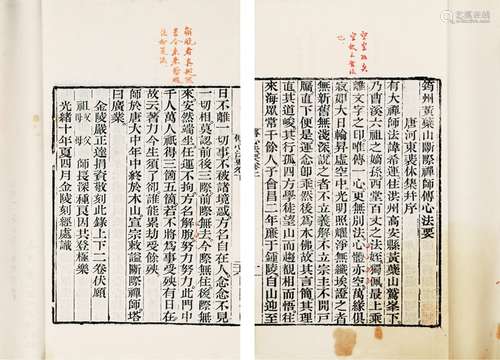 筠州黃檗山斷際禪師傳心法要
唐河東裴休集并序
有大禪師法諱希運住洪州高安縣黃檗山鷲峯下
乃曹溪六祖之嫡孫西堂百丈之姪獨佩最上乘
離文字之印唯傳一心更無別法心體亦空萬緣俱
寂如大日輪昇虛空中光明照耀淨無纖埃證之者
無新舊無淺深說之者不立義解不立宗主不開戶
牖直下便是運念即乖然後為本佛故其言簡其理
直其道峻其行孤四方學徒望山而趨覩相而悟往
來海眾常千餘人予會昌二年廉于鍾陵自山迎至
日不離一切事不被諸境惑方名自在人念念不見
一切相莫認前後三際前際無去今際無住後際無
來安然端坐任運不拘方名解脫努力努力此門中
千人萬人秖得三箇五箇若不將為事受殃有日在
故云著力今生須了却誰能累劫受餘殃
師於唐大中年中終於本山宣宗敕諡斷際禪師塔
曰廣業
金陵嚴正達捐資敬刻此錄上下二卷伏願
師長深植良因共登極樂
光緒十年夏四月金陵刻經處識